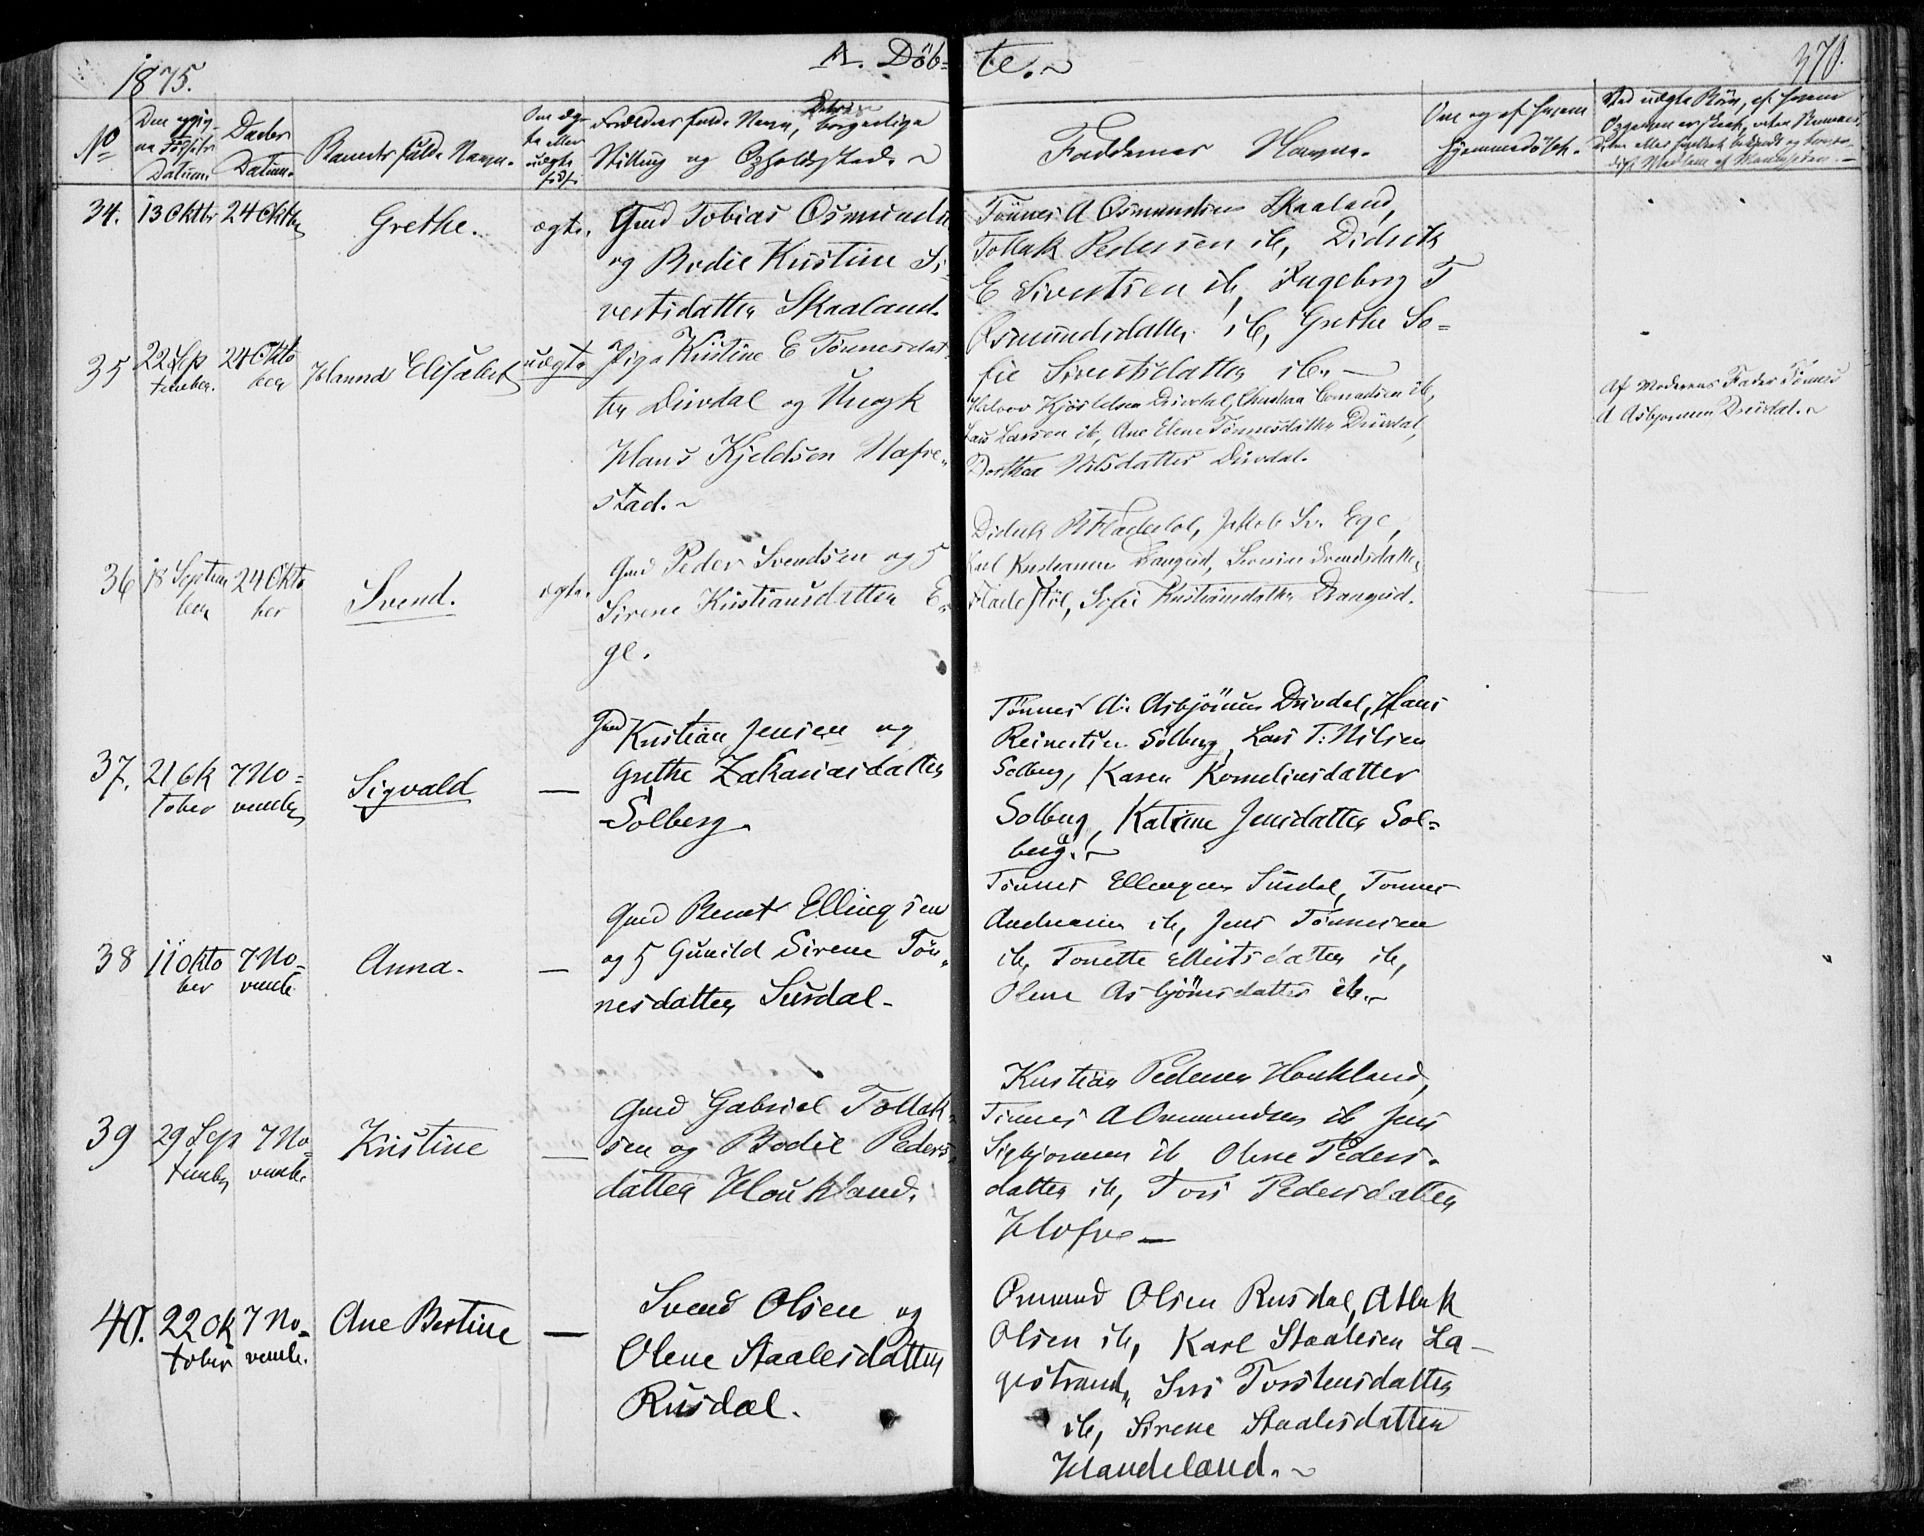 1875.
A. Döb=
te.
370.
No
Den opgiv
ne Födsels
Datum.
Daabs
Datum.
Barnets fulde Navn.
Om æg-
te eller
uægte
född.
Forældres fulde Navn, borgerlige
Stilling og Opholdssted.
Faddernes Navne.
Om og af hvem
hjemmedöbt.
Ved uægte Börn, af hvem
34.
13 Oktbr
24 Oktbr
Grethe.
ægte.
Gmd Tobias Osmunds
og Bodil Kristine Si-
vertsdatter Skaaland.
Tönnes A Osmundsen Skaaland,
Tollak Pedersen ib, Didrik
E Sivertsen ib, Ingeborg T
Osmundsdatter ib, Grethe So=
fie Sivertsdatter ib.
35
22 Sep
tember.
24 Okto
ber
Hanna Elisabet
uægte
Pige Kristine E Tönnesdat
ter Drivdal og Ungk
Hans Kjeldsen Nafre-
stad.
Halvor Kjöstelsen Drivdal, Christian Conradsen ib,
Lars Larsen ib, Ane Elene Tönnesdatter Drivdal,
Dorthea Nilsdatter Drivdal.
Af Moderens Fader Tönnes
A Asbjornsen Drivdal.
36
18 Septem
ber
24 Okto
ber
Svend.
ægte.
Gmd Peder Svendsen og H
Sirene Kristiansdatter E-
ge.
Didrik P Fladestöl, Jakob Sv. Ege,
Karl Kristiansen Drangsid, Severine Svendsdatter
Fladestöl, Sofie Kristiansdatter Drangsid.
37.
21 Ok
tober
7 No=
vember
Sigvald
—
Gmd Kristian Jensen og
Grethe Zakariasdatter
Solberg
Tönnes A. Asbjörnsen Drivdal, Hans
Reinertsen Solberg, Lars T. Nilsen
Solberg, Karen Korneliusdatter
Solberg, Katrine Jensdatter Sol=
berg.
38
11 Okto
ber
7 No=
vemb.
Anna.
—
Gmd Berent Ellingsen
og H Gunild Sirene Tön-
nesdatter Surdal.
Tönnes Ellingsen Surdal, Tönnes
Andreasen ib, Jens Tönnesen
ib, Tonette Ellertsdatter ib,
Olene Asbjörnsdatter ib.
39
29 Sep
tember
7 No=
vemb.
Kristine
—
Gmd Gabriel Tollak-
sen og Bodil Peders-
datter Houkland.
Kristian Pedersen Houkland,
Tönnes A Osmundsen ib Jens
Sigbjornsen ib Olene Peders-
datter ib, Tori Pedersdatter
Hofve
40.
22 Ok
tober
7 No=
vemb.
Ane Bertine
—
Svend Olsen og
Olene Staalesdatter
Rusdal.
Omund Olsen Rusdal, Atlak
Olsen ib, Karl Staalesen La-
gestrand, Siri Torstensdatter
ib, Sirene Staalesdatter
Handeland.